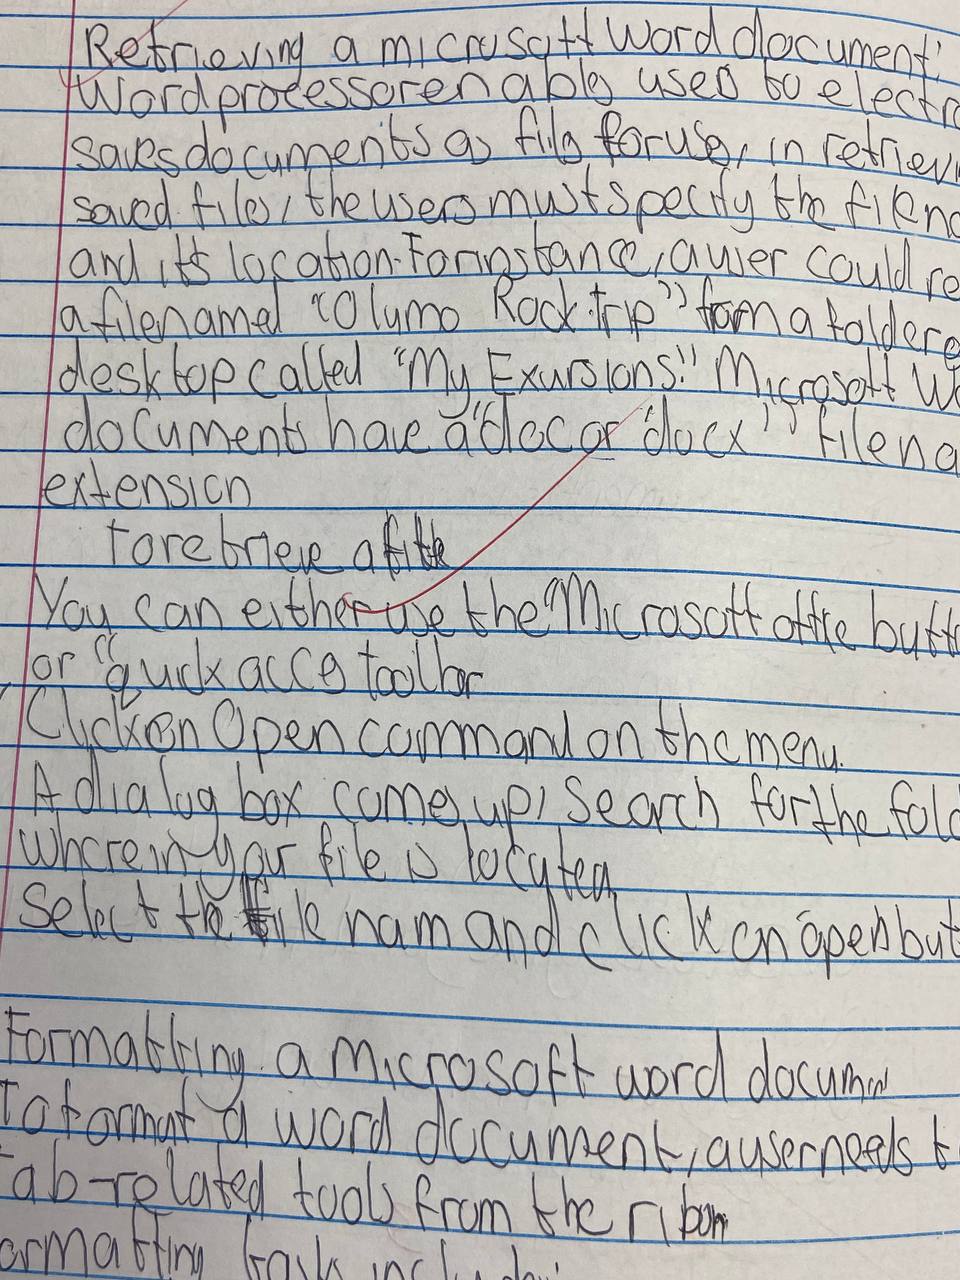 Retrieving a microsoft Word document:
Word processor enables users to electro
saves documents as file for use, in retriev
saved files, the users must specify the file na
and its location. For instance, a user could re
a file named "Olumo Rock trip" from a folder o
desktop called "My Exursions." Microsoft Wo
documents have a "doc or "docx" file na
extension
To retrieve a file
You can either use the "Microsoft office butt
or "quick acces toolbar
Click on Open command on the menu.
A dialog box comes up, search for the fold
wherein your file is located
Select the file nam and click on open but
Formatting a Microsoft word documn
To format a word document, a user needs t
Tab-related tools from the ribon
ormatting task includ